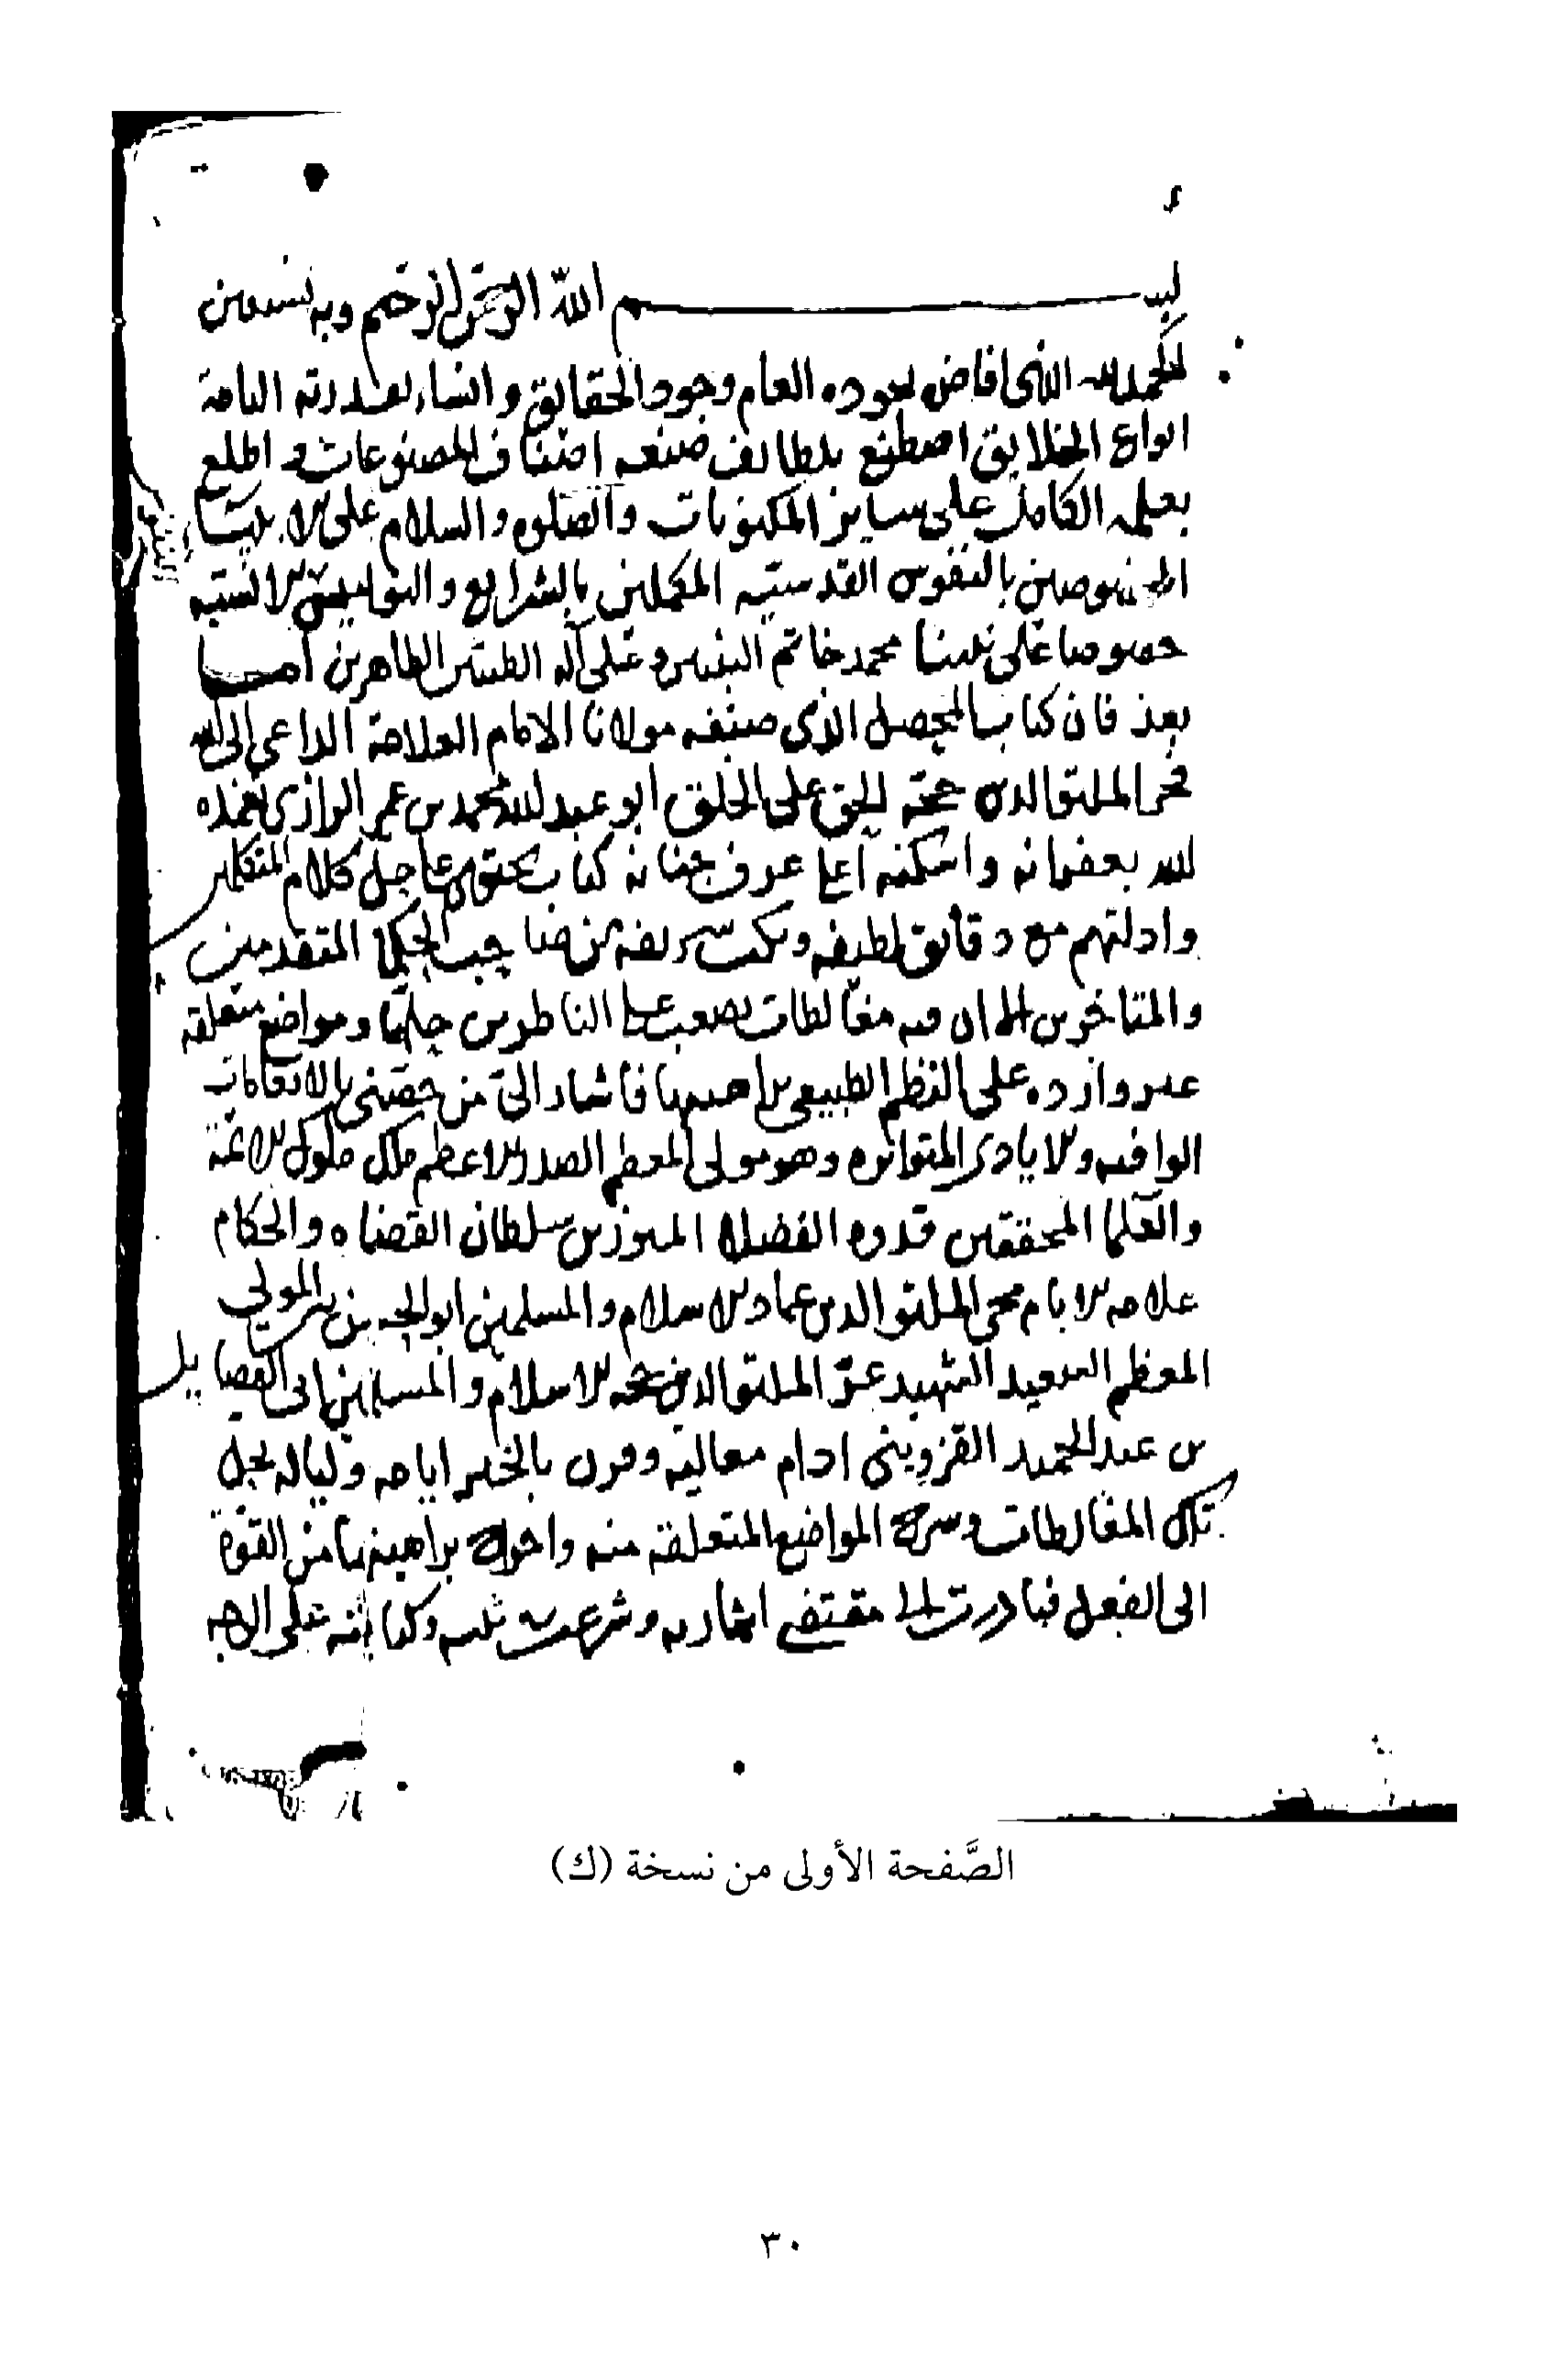 بسم الله الرحمن الرحيم وبه نستعين
الحمد لله الذي افاض بجوده العام وجود الحقايق وانشاء بقدرته التامة
انواع الخلايق اصطنع بلطايف صنعه اصناف المصنوعات و اطلع
بعلمه الكامل على ساير المكنونات والصلوه والسلام على الانبياء
المخصوصين بالنفوس القدسيه المكملين بالشرايع
خصوصا على نبينا محمد خاتم النبيين وعلى آله الطيبين الطاهرين اما
بعد فان كتاب المحصل الذي صنفه مولانا الامام العلامة الداعي الى الله
فخر الملة والدين حجة الحق على الخلق ابو عبد الله محمد بن عمر الرازي تغمده
الله بغفرانه واسكنه اعلا غرف جنانه كتاب يحتوى على جل كلام المتكلمين
وادلتهم مع دقائق لطيفه ونكت شريفه من الحكما المتقدمين
والمتاخرين الا ان فيه مغالطات يصعب على الناظرين حلها ومواضع متعلقه
غير وارده على النظم الطبيعي براهينها فاشار الي من خصني بالانعامات
الوافيه والايادي المتواتره وهو مولى المعظم الصدر الاعظم ملك ملوك الائمة
والعلما المحققين قدوه الفضلا المبرزين سلطان القضاه والحكام
علامه الايام محي الملة والدين عماد الاسلام والمسلمين ابو بن المولى
المعظم السعيد الشهيد عز الملة والدين الاسلام والمسلمين ابى الفضايل
بن عبد الحميد القزويني ادام معاليه وقرن بالخير ايامه ولياليه بحل
تلك المغالطات وشرح المواضع المتعلقة منه واخراج براهينها من القوة
الى الفعل فبادرت الى مقتضى اشارته وشرعت فيه وكتابته على الوجه
الصَّفحة الأولى من نسخة (ك)
٣٠